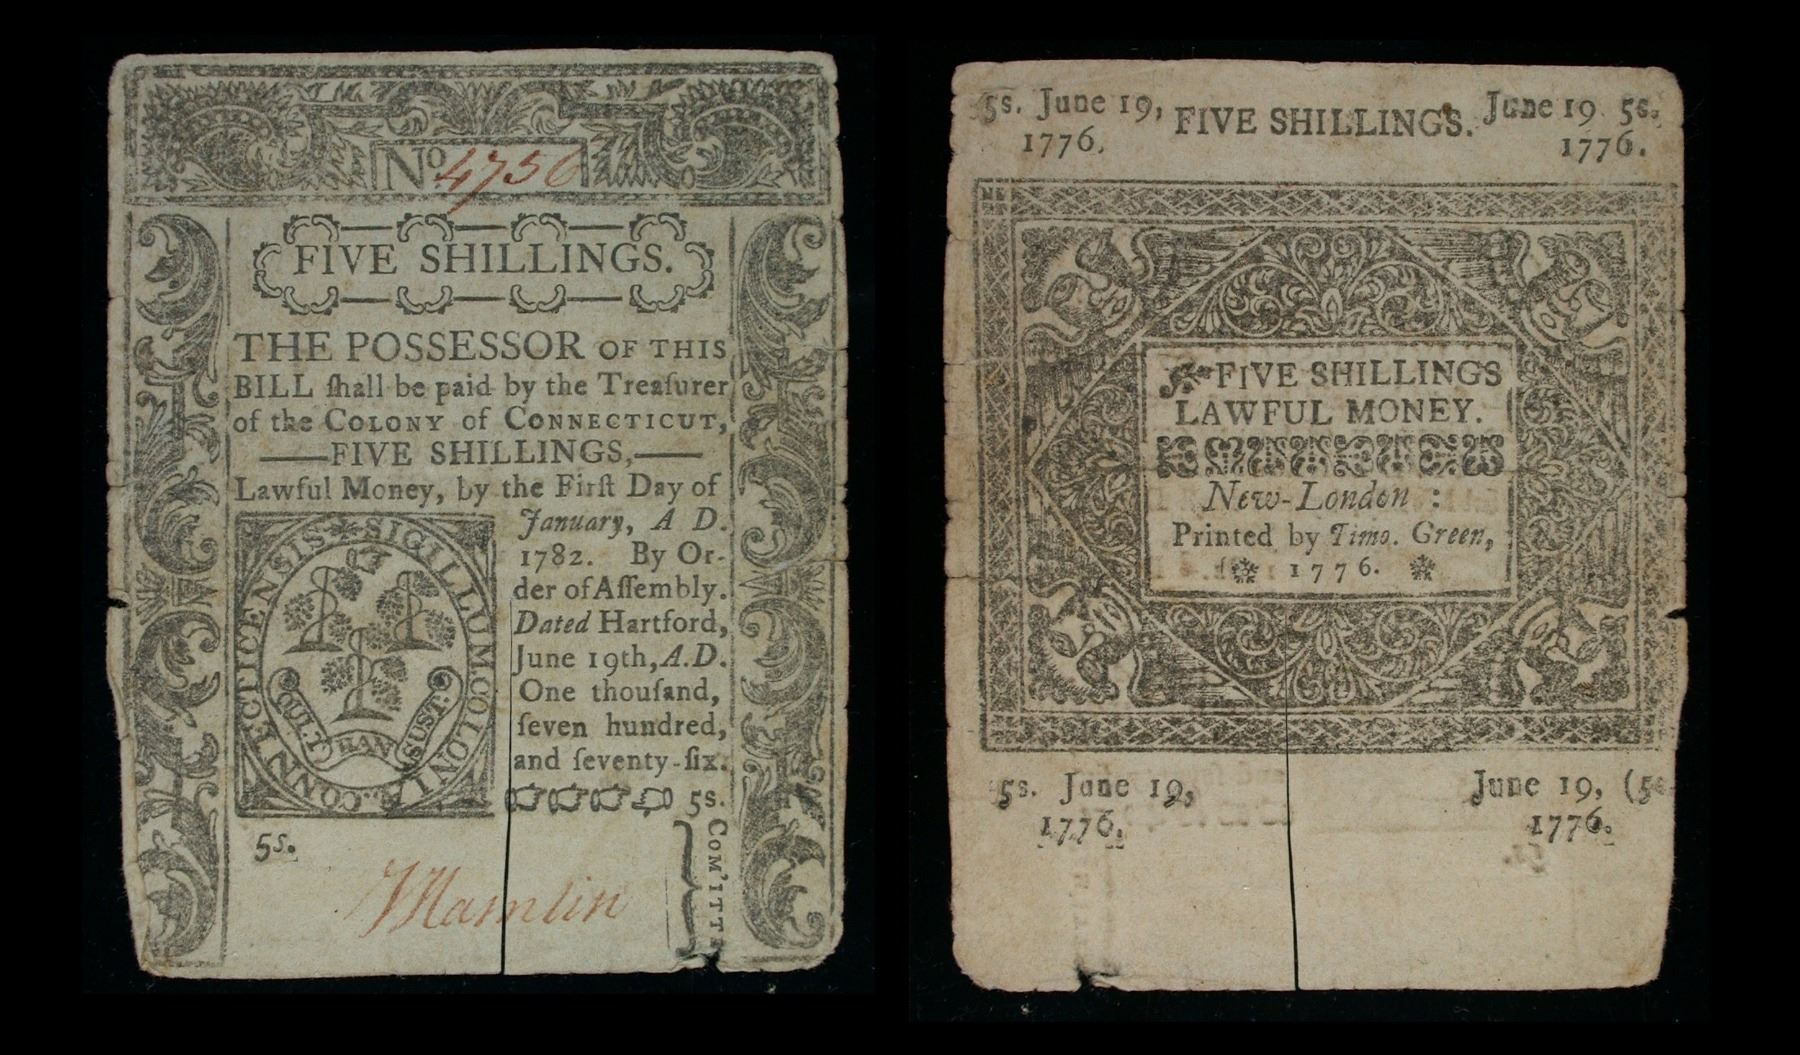 No 4756
FIVE SHILLINGS.
THE POSSESSOR OF THIS
BILL ſhall be paid by the Treaſurer
of the COLONY of CONNECTICUT,
FIVE SHILLINGS,
Lawful Money, by the Firſt Day of
January, A D.
1782. By Or-
der of Aſſembly.
Dated Hartford,
June 19th, A.D.
One thouſand,
ſeven hundred,
and ſeventy-ſix.
5s.
SIGILLUM COLONIÆ CONNECTICENSIS
QUI TRAN SUST.
5s.
COM'ITTE
J Hamlin
5s. June 19, FIVE SHILLINGS. June 19 5s.
1776. 1776.
FIVE SHILLINGS
LAWFUL MONEY.
New-London :
Printed by Timo. Green,
1776.
5s. June 19, June 19, (5s
1776. 1776.